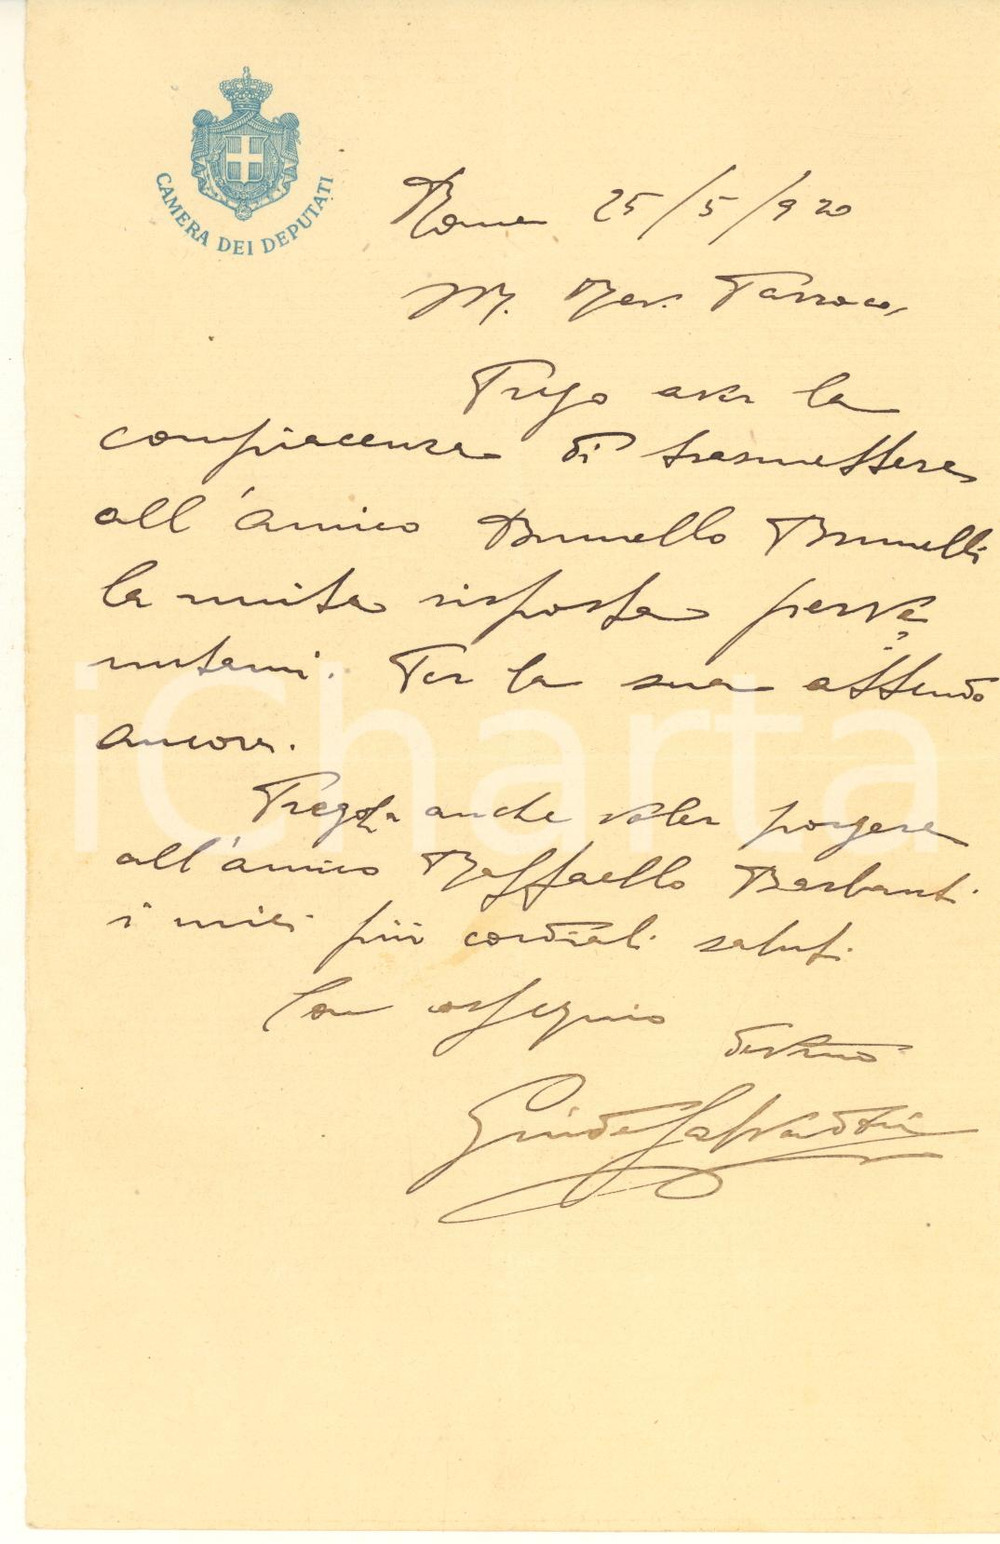 CAMERA DEI DEPUTATI
Roma 25/5/920
M. Rev. Parroco,
Prego aver la
compiacenza di trasmettere
all'amico Brunello Brunelli
la unita risposta perve=
nutami. Per la sua attendo
ancora.
Pregola anche voler porgere
all'amico Raffaello Barbanti
i miei più cordiali saluti.
Con ossequio
dev.mo
Guido
iCharta